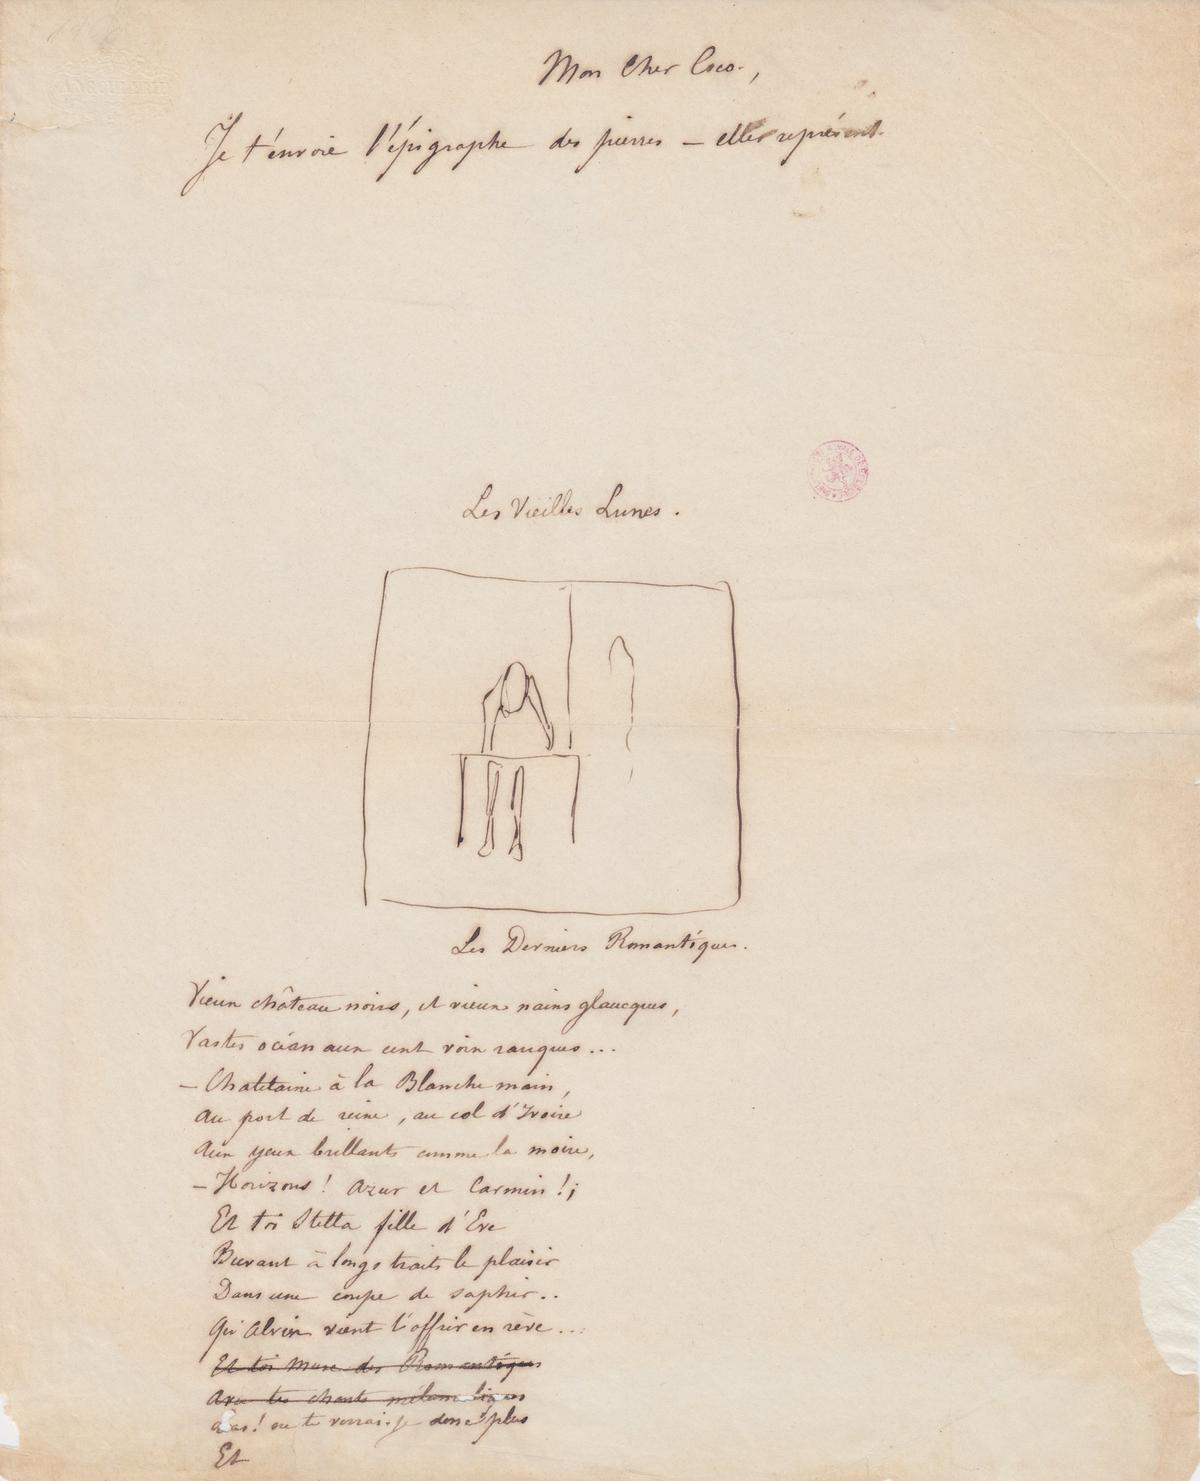 Mon Cher Coco.,
Je t'énvoie l'épigraphe des pierres — elles représent.
Les Vieilles Lunes.
Les Derniers Romantiques.
Vieux château noirs, et vieux nains glaucques,
Vastes océan aux cent voix rauques...
— Chatelaine à la Blanche main,
Au port de reine, au col d'Ivoire
Aux yeux brillants comme la moire,
— Horizons! Azur et Carmin!;
Et toi Stella fille d'Eve
Buvant à longs traits le plaisir
Dans une coupe de saphir..
Qu'Alvin vient t'offrir en rève...
Et toi Muse des Romantiques
Avec tes chants mélancoliques
ne te verrai-je donc plus
Et